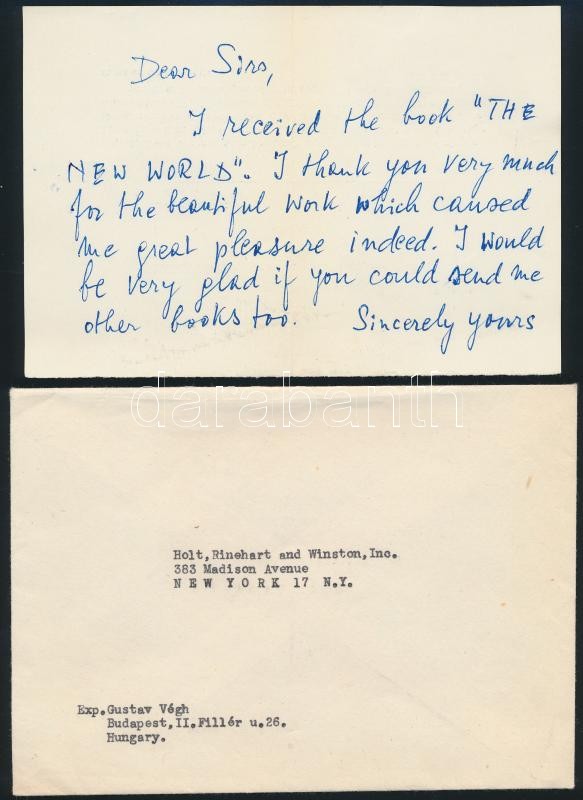 Dear Sirs,
I received the book "THE
NEW WORLD". I thank you very much
for the beautiful work which caused
me great pleasure indeed. I would
be very glad if you could send me
other books too. Sincerely yours
darabanth
Holt, Rinehart and Winston, Inc.
383 Madison Avenue
NEW YORK 17 N.Y.
Exp. Gustav Végh
Budapest, II. Fillér u. 26.
Hungary.